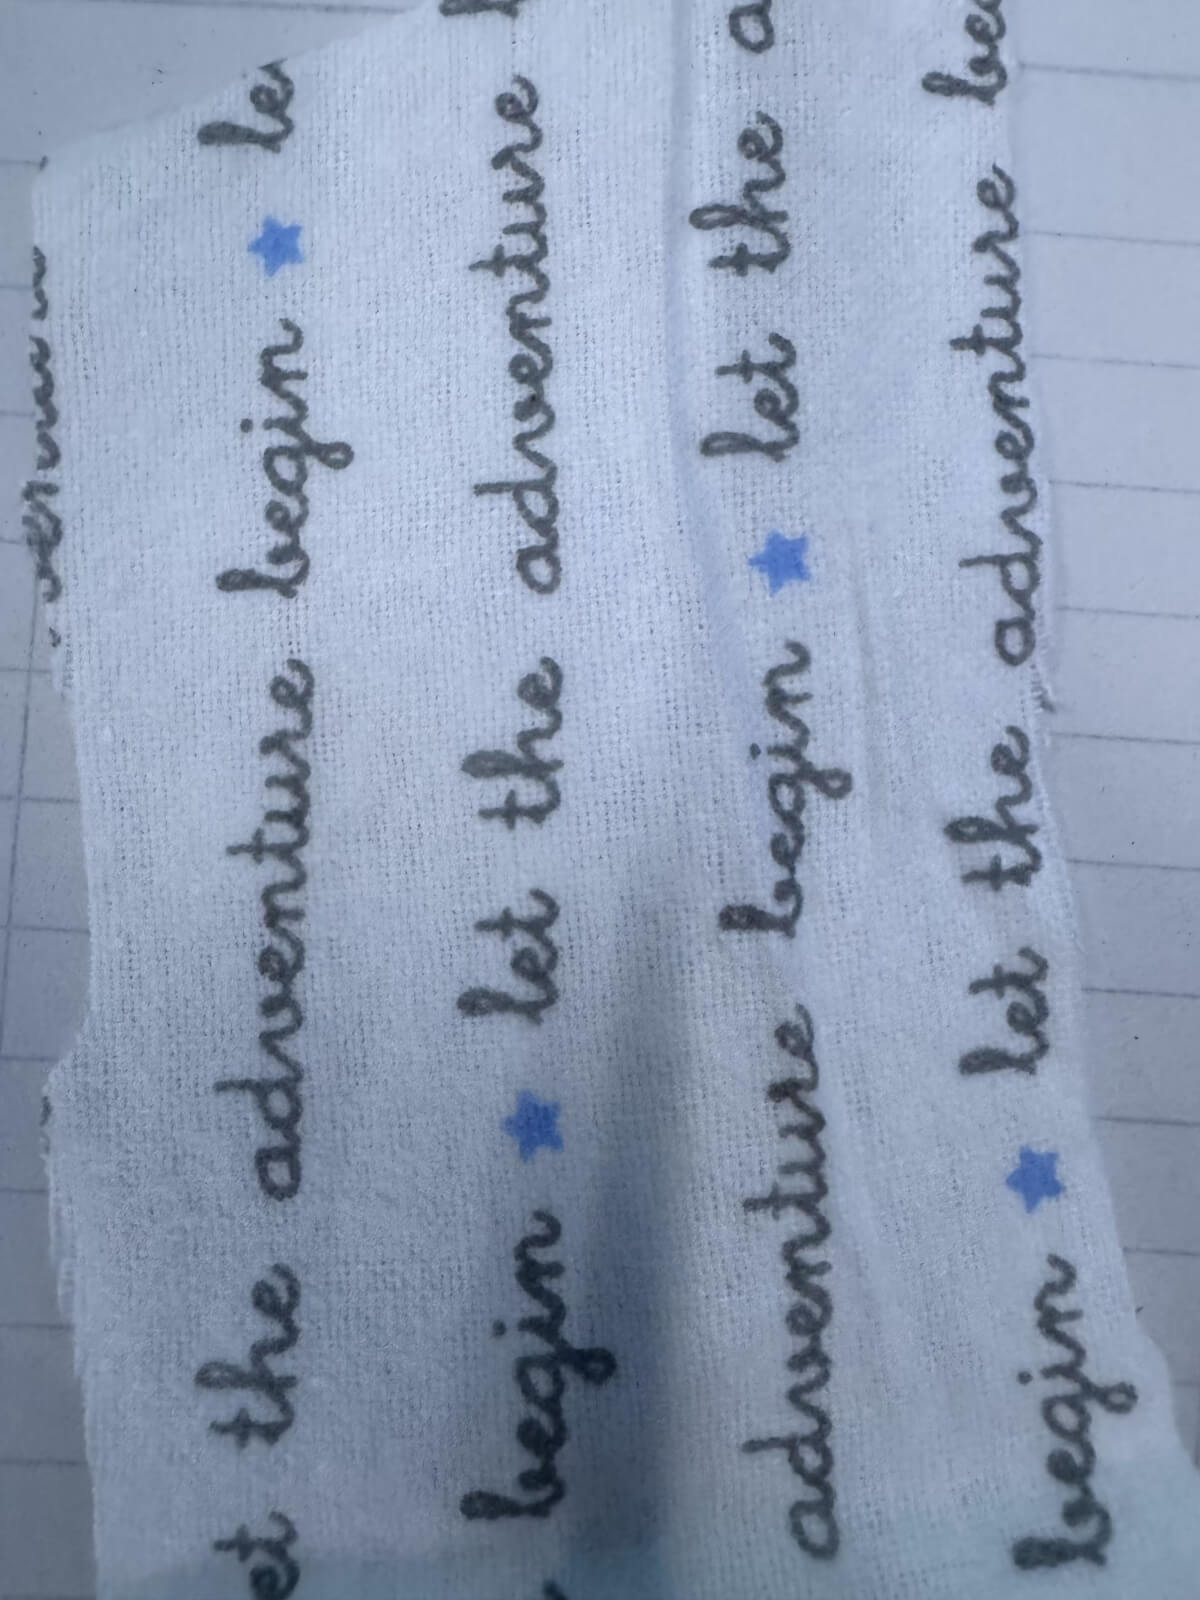 et the adventure begin ★ le
begin ★ let the adventure
adventure begin ★ let the a
begin ★ let the adventure be